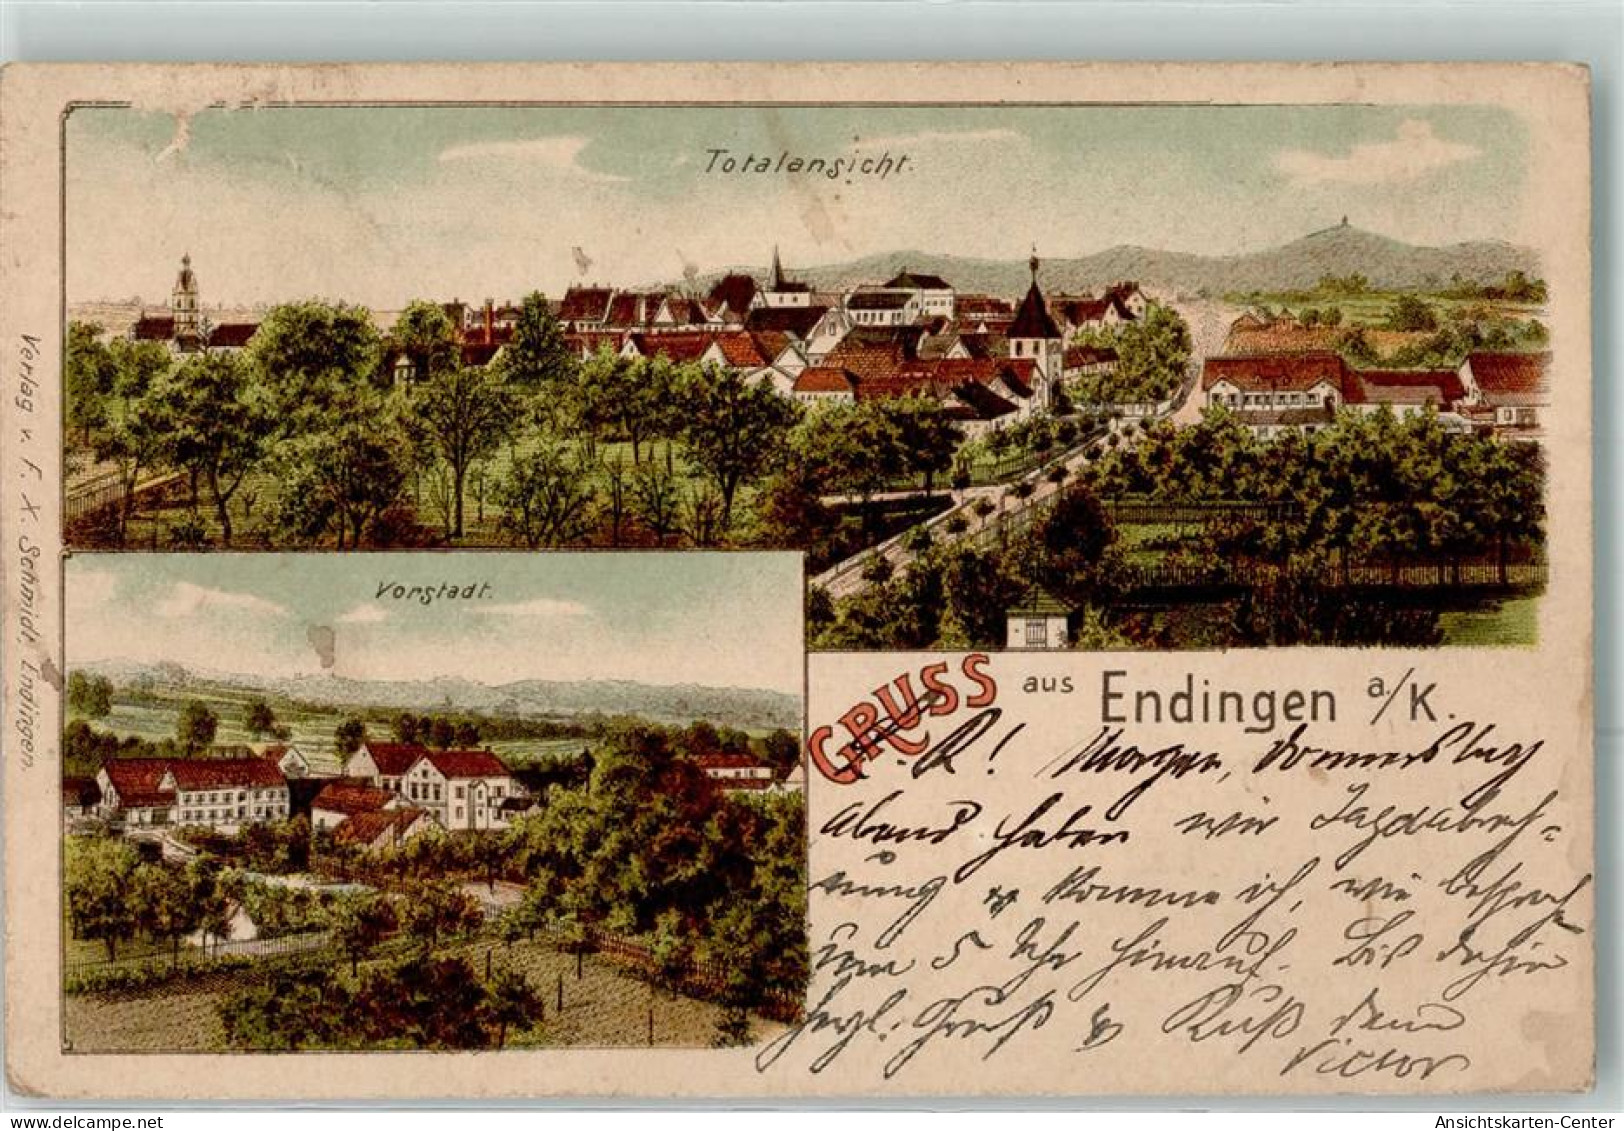 Totalansicht.
Vorstadt.
Verlag v. F. X. Schmidt, Endingen.
GRUSS aus Endingen a/K.
L. R! Morgen, Donnerstag
abend haben wir Jagdabrech=
nung & komme ich, wie besproch
um 5 Uhr hinauf. Bis dahin
herzl. Gruß & Kuß dein
Victor
Ansichtskarten-Center